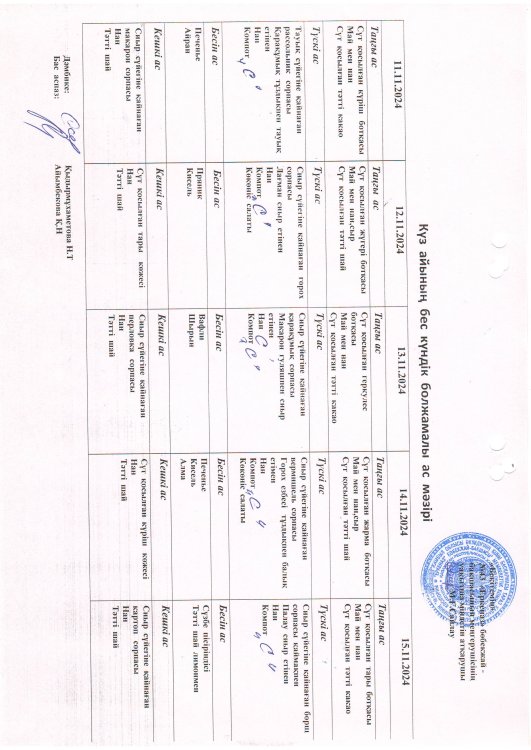 «Бекітемін»
Күз айының бес күндік болжамалы ас мәзірі
11.11.2024
Таңғы ас
Сүт қосылған күріш ботқасы
Май мен нан
Сүт қосылған тәтті какао
Түскі ас
Тауық сүйегіне қайнаған
рассольник сорпасы
Қарақұмық тұздықпен тауық
етінен
Нан
Компот
Бесін ас
Печенье
Айран
Кешкі ас
Сиыр сүйегіне қайнаған
макарон сорпасы
Нан
Тәтті шай
12.11.2024
Таңғы ас
Сүт қосылған жүгері ботқасы
Май мен нан,сыр
Сүт қосылған тәтті шай
Түскі ас
Сиыр сүйегіне қайнаған горох
сорпасы
Лагман сиыр етінен
Нан
Компот
Көкөніс салаты
Бесін ас
Пряник
Кисель
Кешкі ас
Сүт қосылған тары көжесі
Нан
Тәтті шай
13.11.2024
Таңғы ас
Сүт қосылған геркулес
ботқасы
Май мен нан
Сүт қосылған тәтті какао
Түскі ас
Сиыр сүйегіне қайнаған
қарақұмық сорпасы
Макарон гуляшпен сиыр
етінен
Нан
Компот
Бесін ас
Вафли
Шырын
Кешкі ас
Сиыр сүйегіне қайнаған
перловка сорпасы
Нан
Тәтті шай
14.11.2024
Таңғы ас
Сүт қосылған жарма ботқасы
Май мен нан,сыр
Сүт қосылған тәтті шай
Түскі ас
Сиыр сүйегіне қайнаған
вермишель сорпасы
Горох езбесі тұздықпен балық
етімен
Нан
Компот
Көкөніс салаты
Бесін ас
Печенье
Кисель
Алма
Кешкі ас
Сүт қосылған күріш көжесі
Нан
Тәтті шай
15.11.2024
Таңғы ас
Сүт қосылған тары ботқасы
Май мен нан
Сүт қосылған тәтті какао
Түскі ас
Сиыр сүйегіне қайнаған борщ
сорпасы қаймақпен
Палау сиыр етінен
Нан
Компот
Бесін ас
Сүзбе пісірінділсі
Тәтті шай лимонмен
Кешкі ас
Сиыр сүйегіне қайнаған
картоп сорпасы
Нан
Тәтті шай
Дәмбике: Қыдырмұхаметова Н.Т
Бас аспаз: Айымбекова Қ.Н